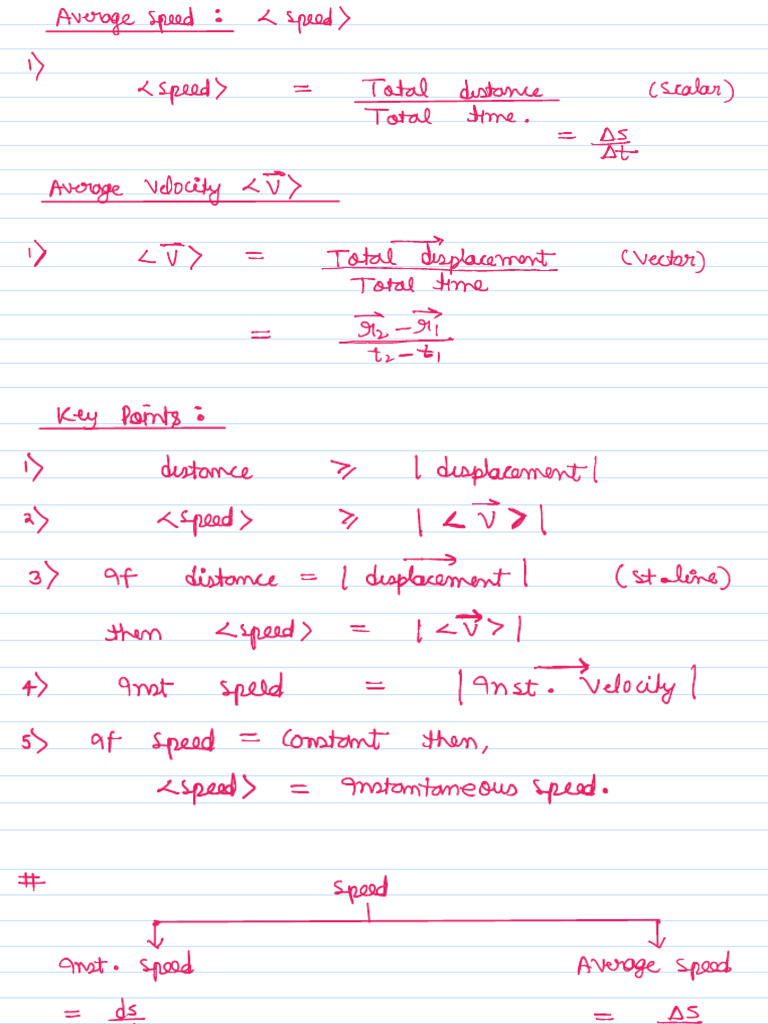 Average Speed : <speed>
1)
<speed> = Total distance / Total time. (Scalar)
= Δs / Δt
Average Velocity <V⃗>
1) <V⃗> = Total displacement⃗ / Total time (Vector)
= (r⃗₂ − r⃗₁) / (t₂ − t₁)
Key Points :
1) distance ≥ | displacement |
2) <speed> ≥ | <V⃗> |
3) If distance = | displacement⃗ | (St. line)
then <speed> = | <V⃗> |
4) Inst speed = | Inst. Velocity⃗ |
5) If speed = Constant then,
<speed> = Instantaneous speed.
# Speed
Inst. speed Average speed
= ds = Δs